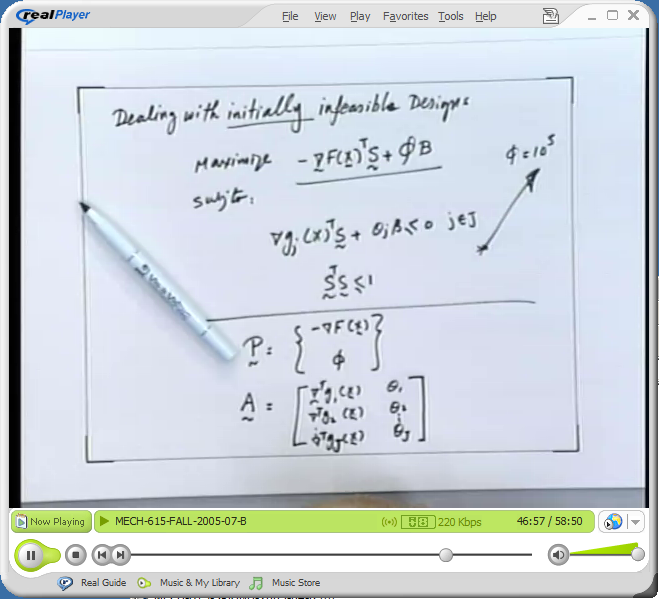 realPlayer
File View Play Favorites Tools Help
Dealing with initially infeasible Designs
Maximize -∇F(x)ᵀS + ΦB
Φ=10⁵
Subj to:
∇gⱼ(x)ᵀS + θⱼB ≤ 0 j∈J
SᵀS ≤ 1
P = { -∇F(x)
Φ }
A = [ ∇ᵀg₁(x) θ₁
∇ᵀg₂(x) θ₂
∇ᵀg_J(x) θ_J ]
Now Playing MECH-615-FALL-2005-07-B 220 Kbps 46:57 / 58:50
Real Guide Music & My Library Music Store